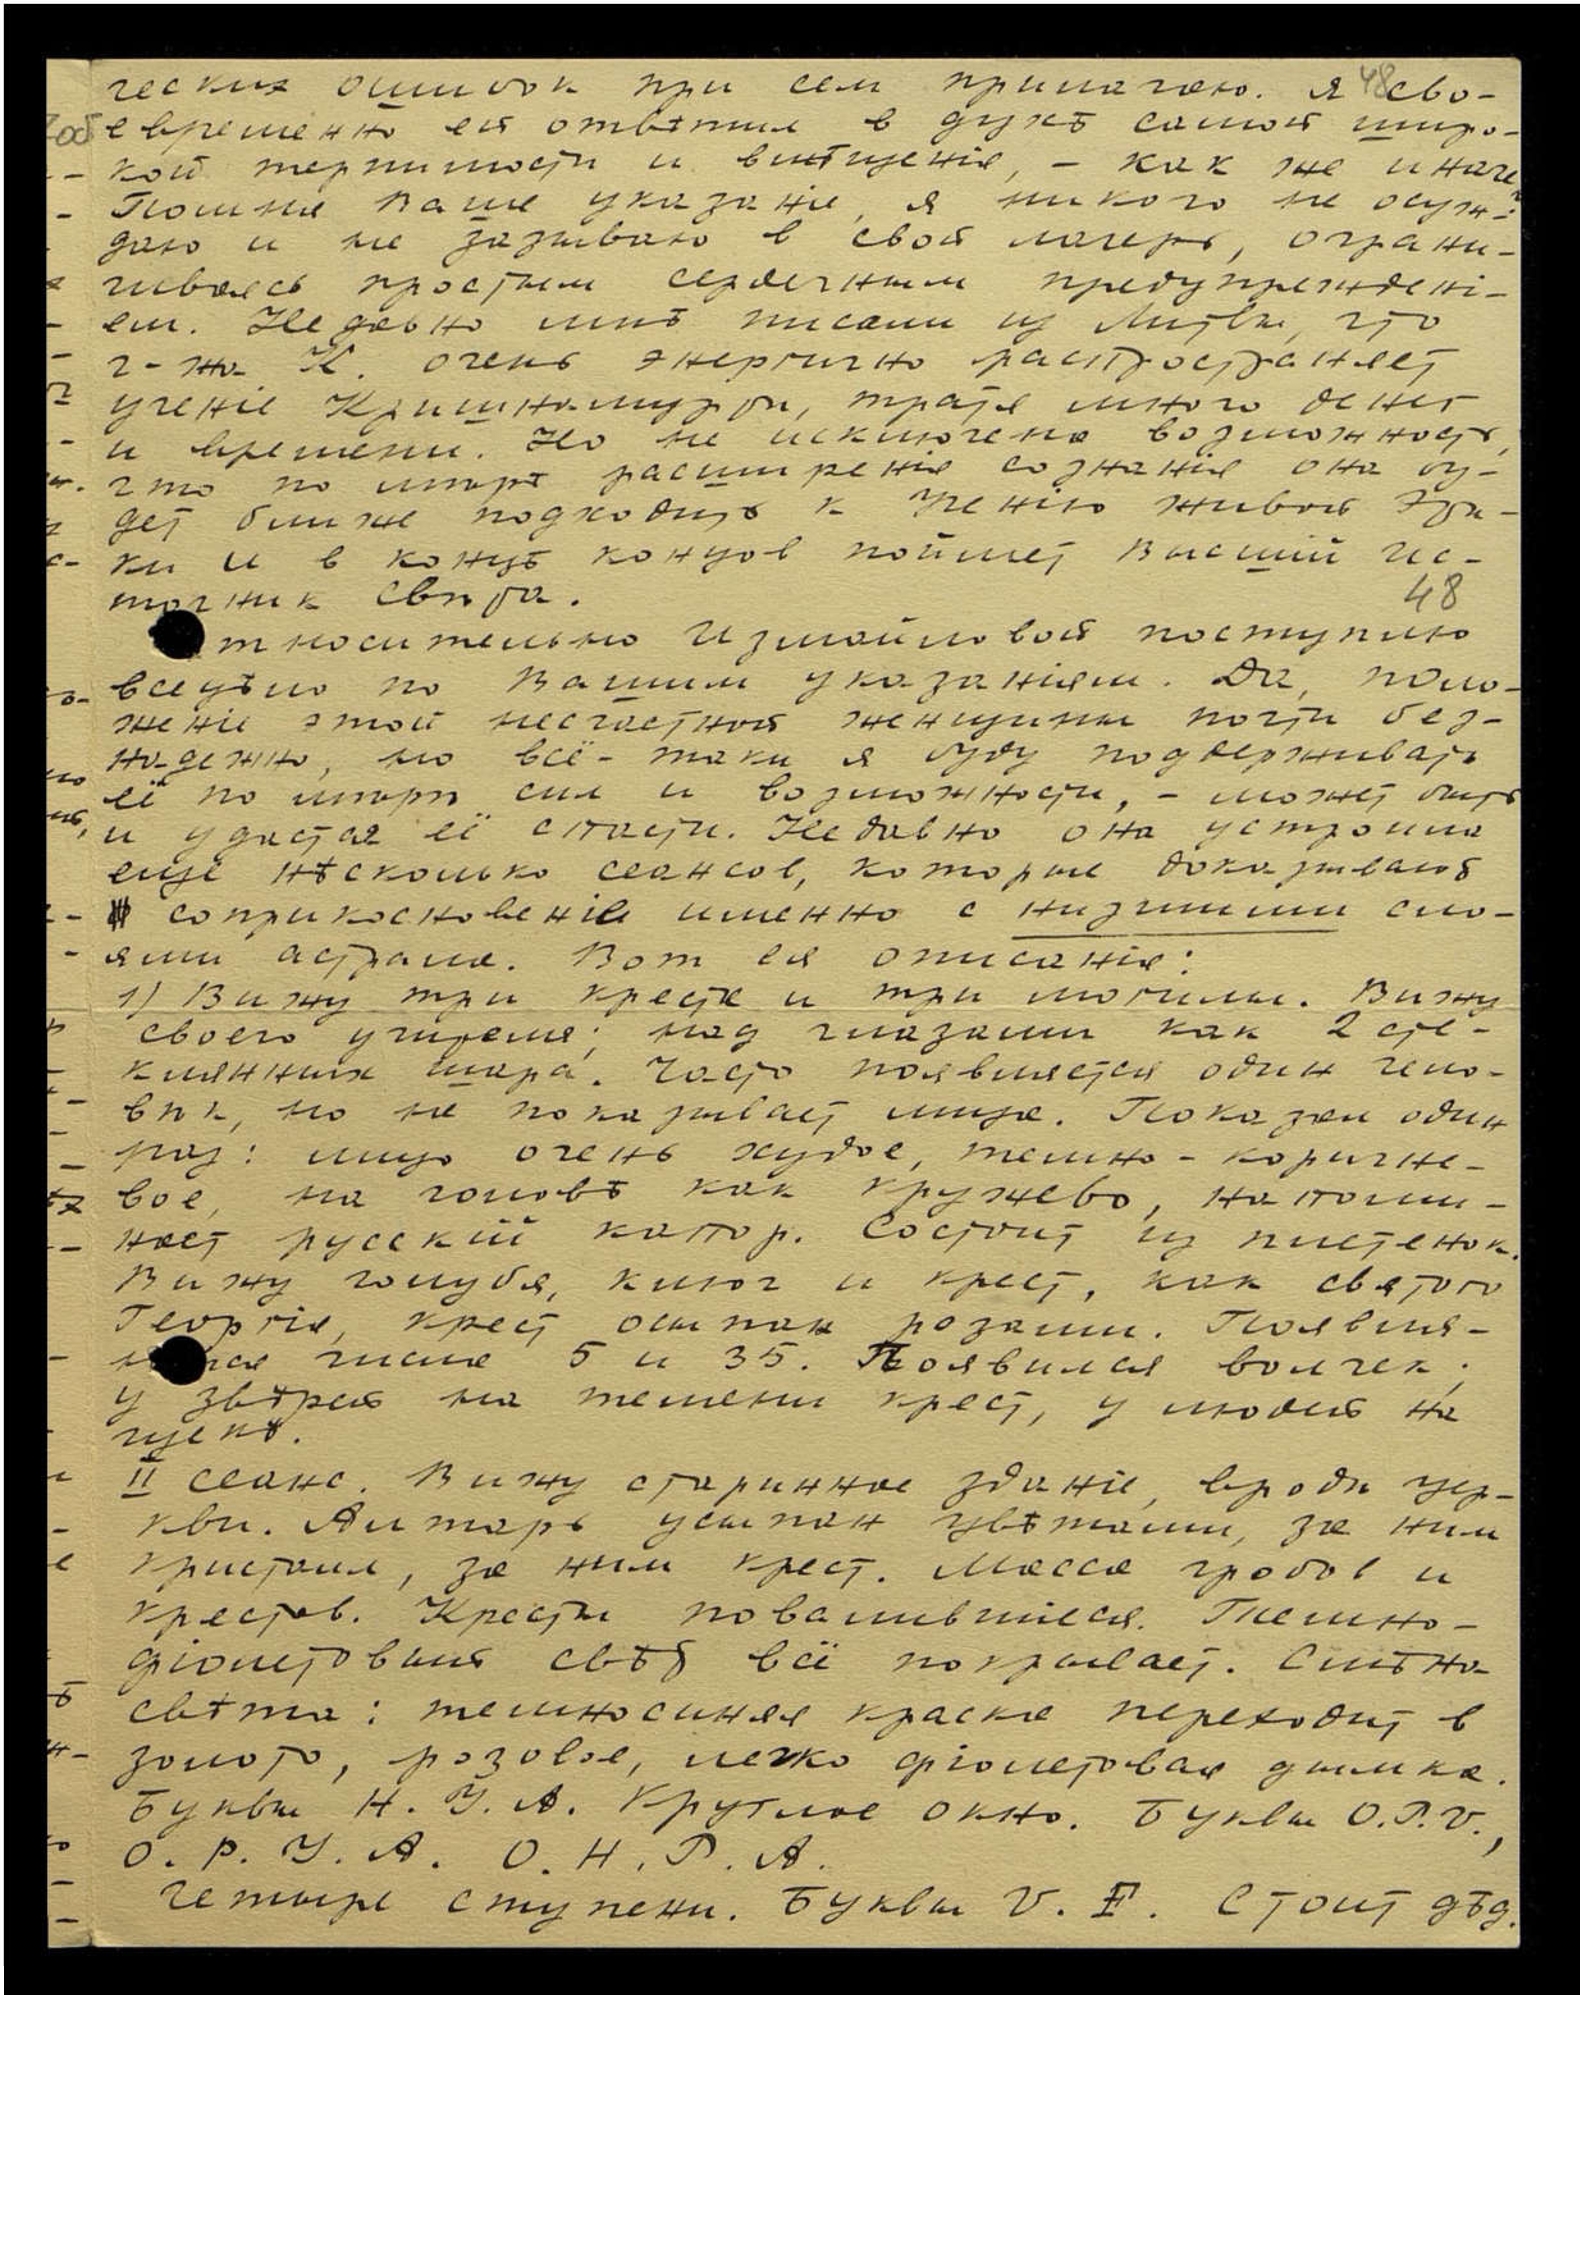 ческих ошибок при сем прилагаю. Я сво-
евременно ей отвѣтил в духѣ самой широ-
кой терпимости и вмѣщенія, – как же иначе?
Помня Ваше указаніе, я никого не осуж-
даю и не зазываю в свой лагерь, ограни-
чиваясь простым сердечным предупрежденi-
ем. Недавно мнѣ писали из Литвы, что
г-жа К. очень энергично распространяет
ученіе Кришнамурти, тратя много денег
и времени. Но не исключена возможность,
что по мѣрѣ расширенія сознанія она бу-
дет ближе подходить к Ученію живой Эти-
ки и в концѣ концов поймет Высшій Ис-
точник Свѣта.
48
Относительно Измайловой поступлю
всецѣло по Вашим указаніям. Да, поло-
женіе этой несчастной женщины почти без-
надежно, но всё-таки я буду поддерживать
её по мѣрѣ сил и возможности, – может быть
и удастся её спасти. Недавно она устроила
еще нѣсколько сеансов, которые доказывают
соприкосновеніе именно с низшими сло-
ями астрала. Вот ея описанія:
1) Вижу три креста и три могилы. Вижу
своего учителя; над глазами как 2 сте-
клянных шара. Часто появляется один чело-
вѣк, но не показывает лица. Показал один
раз: лицо очень худое, темно-коричне-
вое, на головѣ как кружево, напоми-
нает русскій капор. Состоит из плетенок.
Вижу голубя, ключ и крест, как святого
Георгія, крест осыпан розами. Появля-
лися числа 5 и 35. Появился волчек;
у звѣрей на темени крест, у людей на
щекѣ.
II сеанс. Вижу старинное зданіе, вроде цер-
кви. Алтарь усыпан цвѣтами, за ним
кристалл, за ним крест. Масса гробов и
крестов. Кресты повалившіеся. Темно-
фіолетовый свѣт всё покрывает. Смѣна
свѣта: темносиняя краска переходит в
золото, розовое, легко фіолетовая дымка.
Буквы Н. У. А. Круглое окно. Буквы О. Р. V.,
О. Р. У. А. О. Н. Р. А.
Четыре ступени. Буквы V. F. Стоит дѣд.